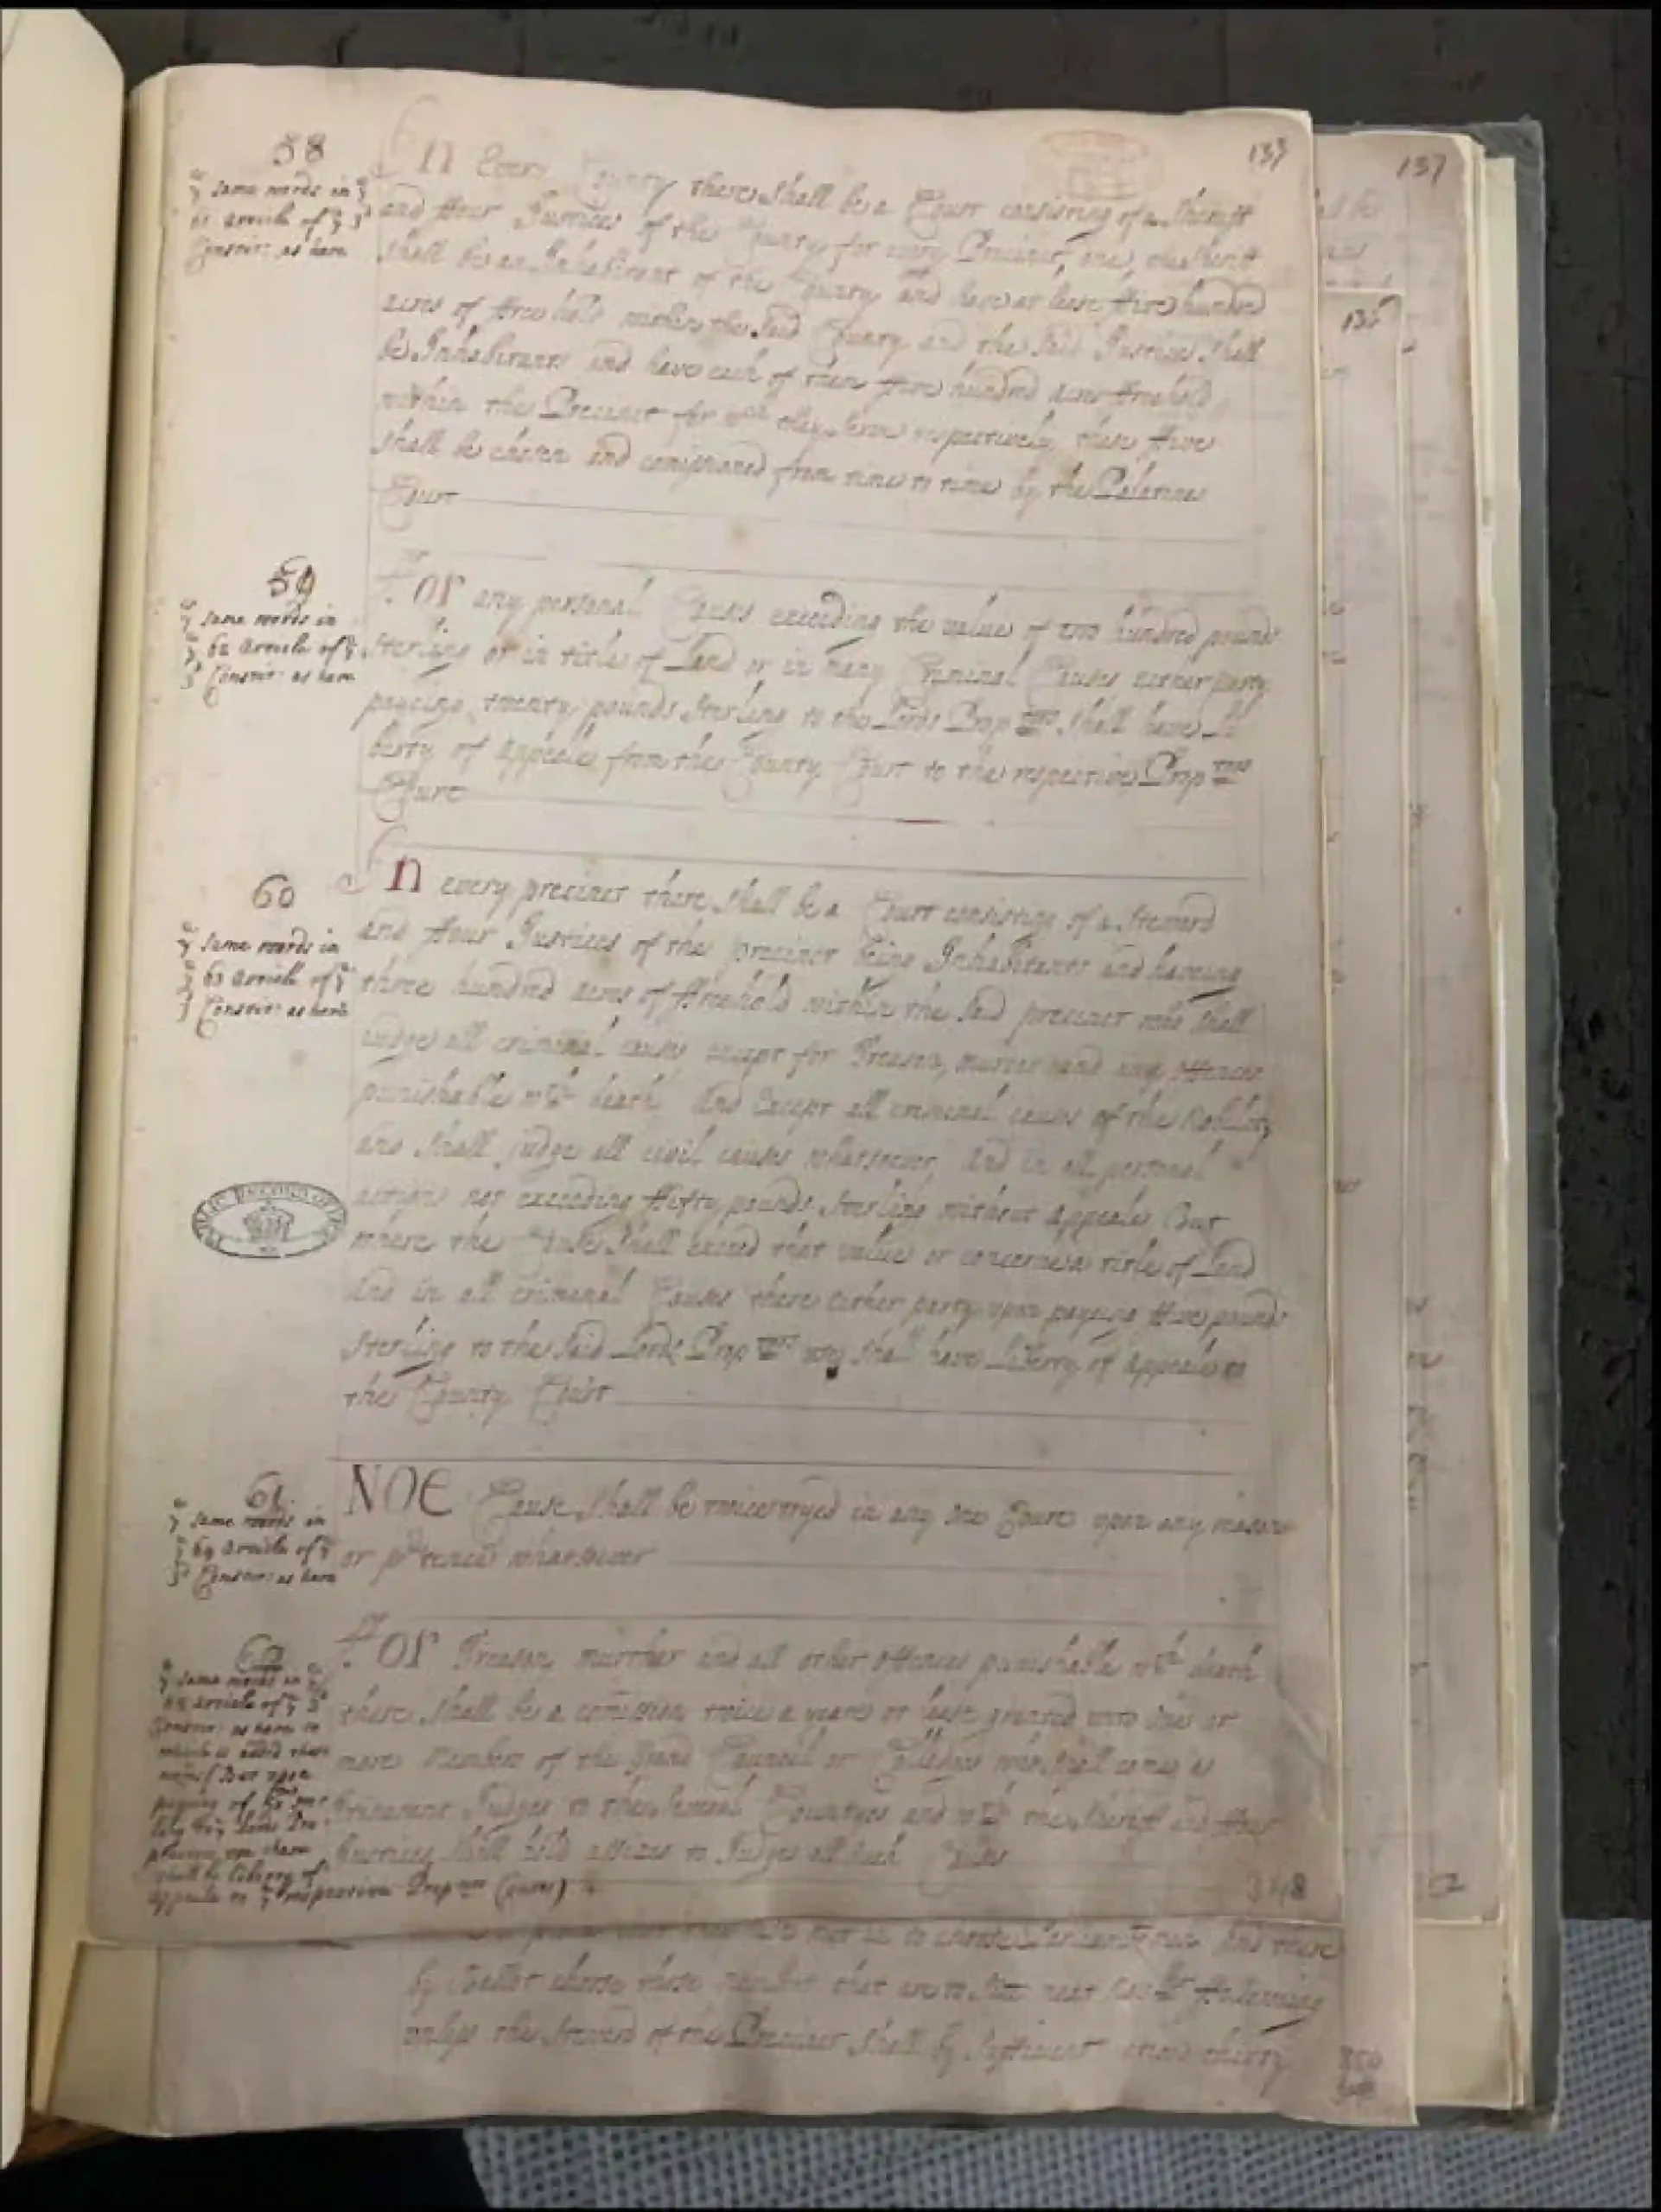 133
137
135
58
ye same words in ye
61 Article of ye 3d
Constit: as here
In Every County there shall be a Court consisting of a Sheriff
and ffour Justices of the County for every Precinct, one, the Sheriff
shall be an Inhabitant of the County and have at least ffive hundred
acres of ffreehold within the said County and the said Justices shall
be Inhabitants and have each of them ffive hundred acres ffreehold
within the Precinct for wch they serve respectively, these ffive
shall be chosen and comissioned from time to time by the Palatines
Court
59
ye same words in
ye 62 Article of ye
3d Constit: as here
For any personal Causes exceeding the value of two hundred pounds
sterling or in titles of Land or in many Criminal Causes either party
paying twenty pounds sterling to the Lords Proptors shall have Li
berty of appeale from the County Court to the respective Proptors
Court
60
ye same words in
ye 63 Article of ye
3d Constit: as here
In every precinct there shall be a Court consisting of a Steward
and ffour Justices of the precinct being Inhabitants and haveing
three hundred acres of ffreehold within the said precinct who shall
Judge all criminal causes except for Treason, murther and any offences
punishable wth death And Except all criminal causes of the Nobility
and shall judge all civil causes whatsoever, And in all personal
actions not exceeding ffifty pounds sterling without appeale, But
where the Cause shall exceed that value or concerne a title of Land
And in all criminal Causes there either party upon paying ffive pounds
sterling to the said Lords Proptors shall have Liberty of appeale to
the County Court
PUBLIC RECORD OFFICE
61
ye same words in
ye 64 Article of ye
3d Constit: as here
NOE Cause shall be twice tryed in any one Court upon any reason
or ptence whatsoever
62
ye same words in ye
65 Article of ye 3d
Constit: as here to
which is added these
words But upon
paying of
Lords Pro
shall be liberty of
appeale to ye respective Proptors Court
For Treason murther and all other offences punishable wth death
there shall be a comission twice a yeare at least granted unto one or
more Members of the Grand Council or Colledges who shall come as
Itinerant Judges to the several Countyes and wth the Sheriff and ffour
Justices shall hold assizes to Judge all such Causes
348
and there
by Ballot choose those number that are to next
unless the Steward of the Precinct shall by sufficient
350
348